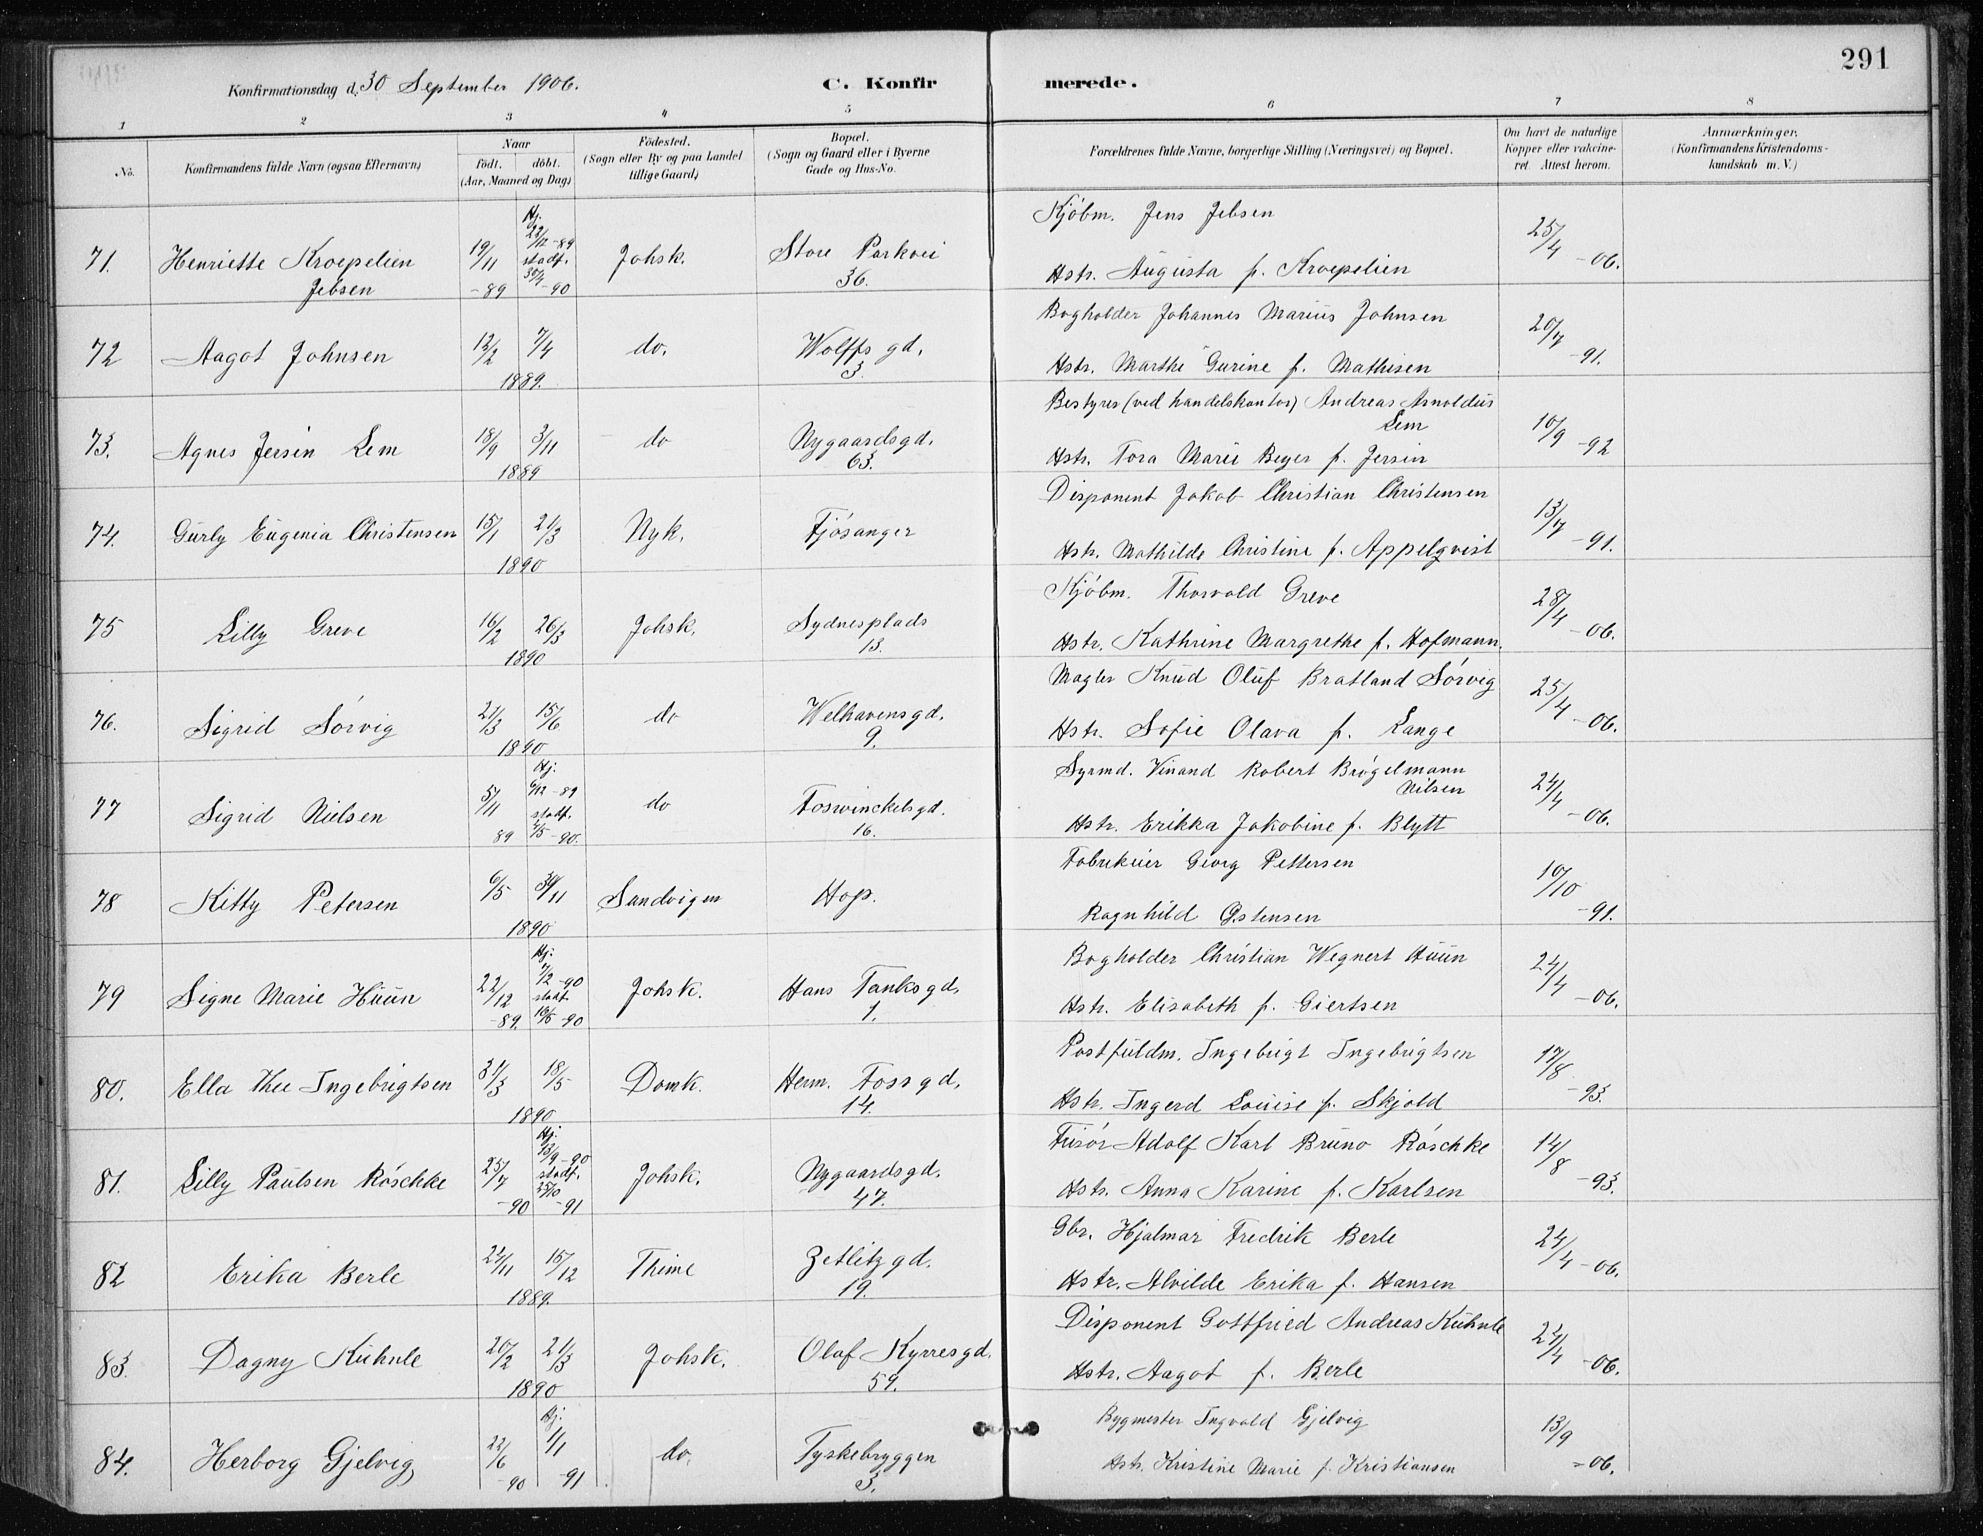 291
Konfirmationsdag d. 30 September 1906.
C. Konfirmerede.
1 2 3 4 5 6 7 8
No.
Konfirmandens fulde Navn (ogsaa Efternavn)
Naar
födt. döbt.
(Aar, Maaned og Dag)
Födested.
(Sogn eller By og paa Landet
tillige Gaard)
Bopæl.
(Sogn og Gaard eller i Byerne
Gade og Hus-No.
Forældrenes fulde Navne, borgerlige Stilling (Næringsvei) og Bopæl.
Om havt de naturlige
Kopper eller vakcine-
ret. Attest herom.
Anmærkninger.
(Konfirmandens Kristendoms-
kundskab m. V.)
71. Henriette Kroepelien Jebsen 19/11 -89 Hj. 22/12 -89 stadf. 30/4 -90 Johsk. Store Parkvei 36.
Kjøbm. Jens Jebsen
Hstr. Augusta f. Kroepelien 25/4 -06.
72 Aagot Johnsen 12/2 7/4 1889. do. Wolffs gd. 3.
Bogholder Johannes Marius Johnsen
Hstr. Marthe Gurine f. Mathisen 20/7 -91.
73. Agnes Jersin Lem 18/9 3/11 1889 do Nygaardsgd. 63.
Bestyrer (ved handelskontor) Andreas Arnoldus Lem
Hstr. Tora Marie Beyer f. Jersin 10/9 -92
74. Gurly Eugenia Christensen 15/1 21/3 1890 Nyk. Fjøsanger
Disponent Jakob Christian Christensen
Hstr. Mathilde Christine f. Appelqvist 13/7 -91.
75 Lilly Greve 16/2 26/3 1890 Johsk. Sydnesplads 13.
Kjøbm. Thorvald Greve
Hstr. Kathrine Margrethe f. Hofmann. 28/4 -06.
76. Sigrid Sørvig 21/3 15/6 1890 do Welhavensgd. 9.
Magler Knud Oluf Bratland Sørvig
Hstr. Sofie Olava f. Lange 25/4 -06.
77 Sigrid Nielsen 5/11 89 Hj. 6/12 -89 stadf. 4/5 -90. do Foswinckelsgd. 16.
Syrmd. Vinand Robert Brøgelmann Nilsen
Hstr. Erikka Jakobine f. Blytt 24/4 -06.
78 Kitty Petersen 6/5 30/11 1890 Sandvigen Hop.
Fabrikeier Georg Pettersen
Ragnhild Østensen 10/10 -91.
79 Signe Marie Huun 22/12 -89. Hj. 7/2 -90 stadf. 16/5 -90 Johsk. Hans Tanksgd. 1.
Bogholder Christian Wegnert Huun
Hstr. Elisabeth f. Giertsen 24/4 -06.
80. Ella Thee Ingebrigtsen 31/3 18/5 1890 Domk. Herm. Fossgd. 14.
Postfuldm. Ingebrigt Ingebrigtsen
Hstr. Ingerd Louise f. Skjold 17/8 -93.
81. Lilly Paulsen Røschke 25/7 -90 Hj. 13/9 -90 stadf. 25/10 -91 Johsk. Nygaardsgd. 47.
Frisør Adolf Karl Bruno Røschke
Hstr. Anna Karine f. Karlsen 14/8 -93.
82 Erika Berle 24/11 15/12 1889. Thime Zetlitzgd. 19.
Gbr. Hjalmar Fredrik Berle
Hstr. Alvilde Erika f. Hansen 24/4 -06.
83. Dagny Kuhnle 20/2 21/3 1890 Johsk. Olaf Kyrresgd. 59.
Disponent Gottfried Andreas Kuhnle
Hstr. Aagot f. Berle 24/4 -06.
84. Herborg Gjelvig 22/6 -90 Hj. 1/1 -91 do. Tyskebryggen 3.
Bygmester Ingvald Gjelvig
Hstr. Kristine Marie f. Kristiansen 13/9 -06.